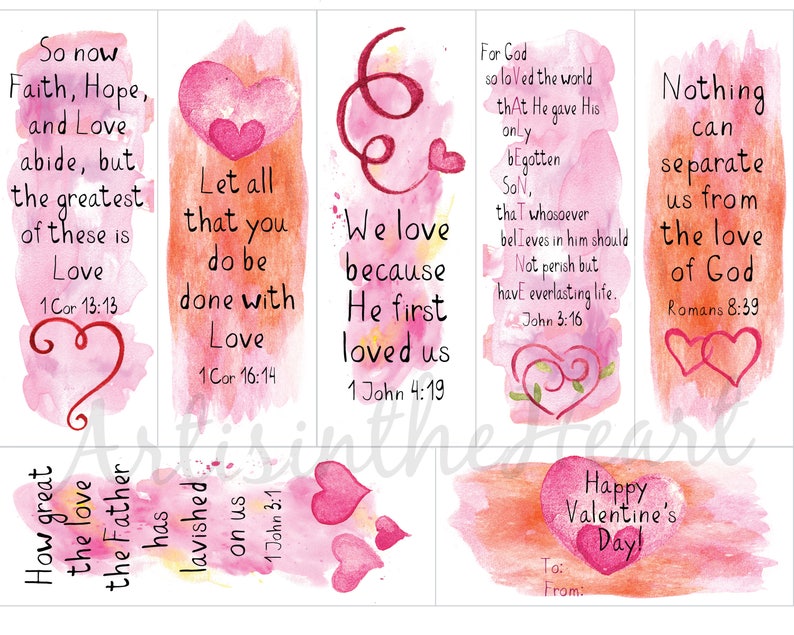 So now
Faith, Hope,
and Love
abide, but
the greatest
of these is
Love
1 Cor 13:13
Let all
that you
do be
done with
Love
1 Cor 16:14
We love
because
He first
loved us
1 John 4:19
For God
so loVed the world
thAt He gave His
onLy
bEgotten
SoN,
thaT whosoever
belIeves in him should
Not perish but
havE everlasting life.
John 3:16
Nothing
can
separate
us from
the love
of God
Romans 8:39
How great
the love
the Father
has
lavished
on us
1 John 3:1
Happy
Valentine's
Day!
To:
From:
ArtisintheHeart